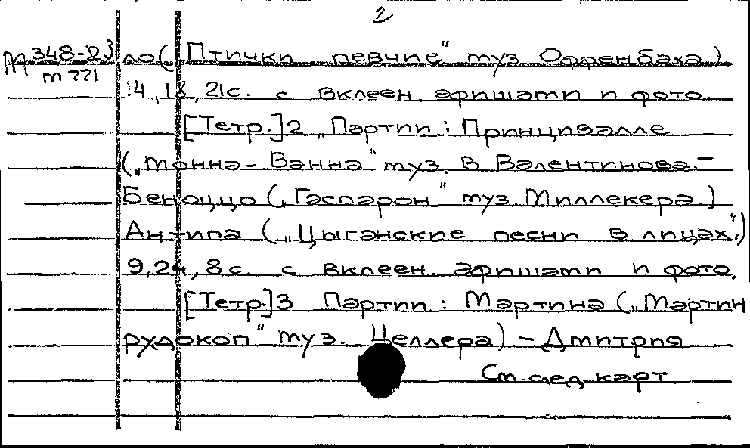 2
М 348-23 ло („Птички певчие" муз. Оффенбаха)
т 771
14, 18, 21с. с вклеен. афишами и фото
[Тетр.] 2 „Партии: Принцивалле
(„Монна-Ванна" муз. В. Валентинова.-
Беноццо („Гаспарон" муз. Миллекера)
Антипа („Цыганские песни в лицах".)
9, 24, 8с. с вклеен. афишами и фото.
[Тетр.] 3 Партии: Мартина („Мартин
рудокоп" муз. Целлера) - Дмитрия
См. след. карт.